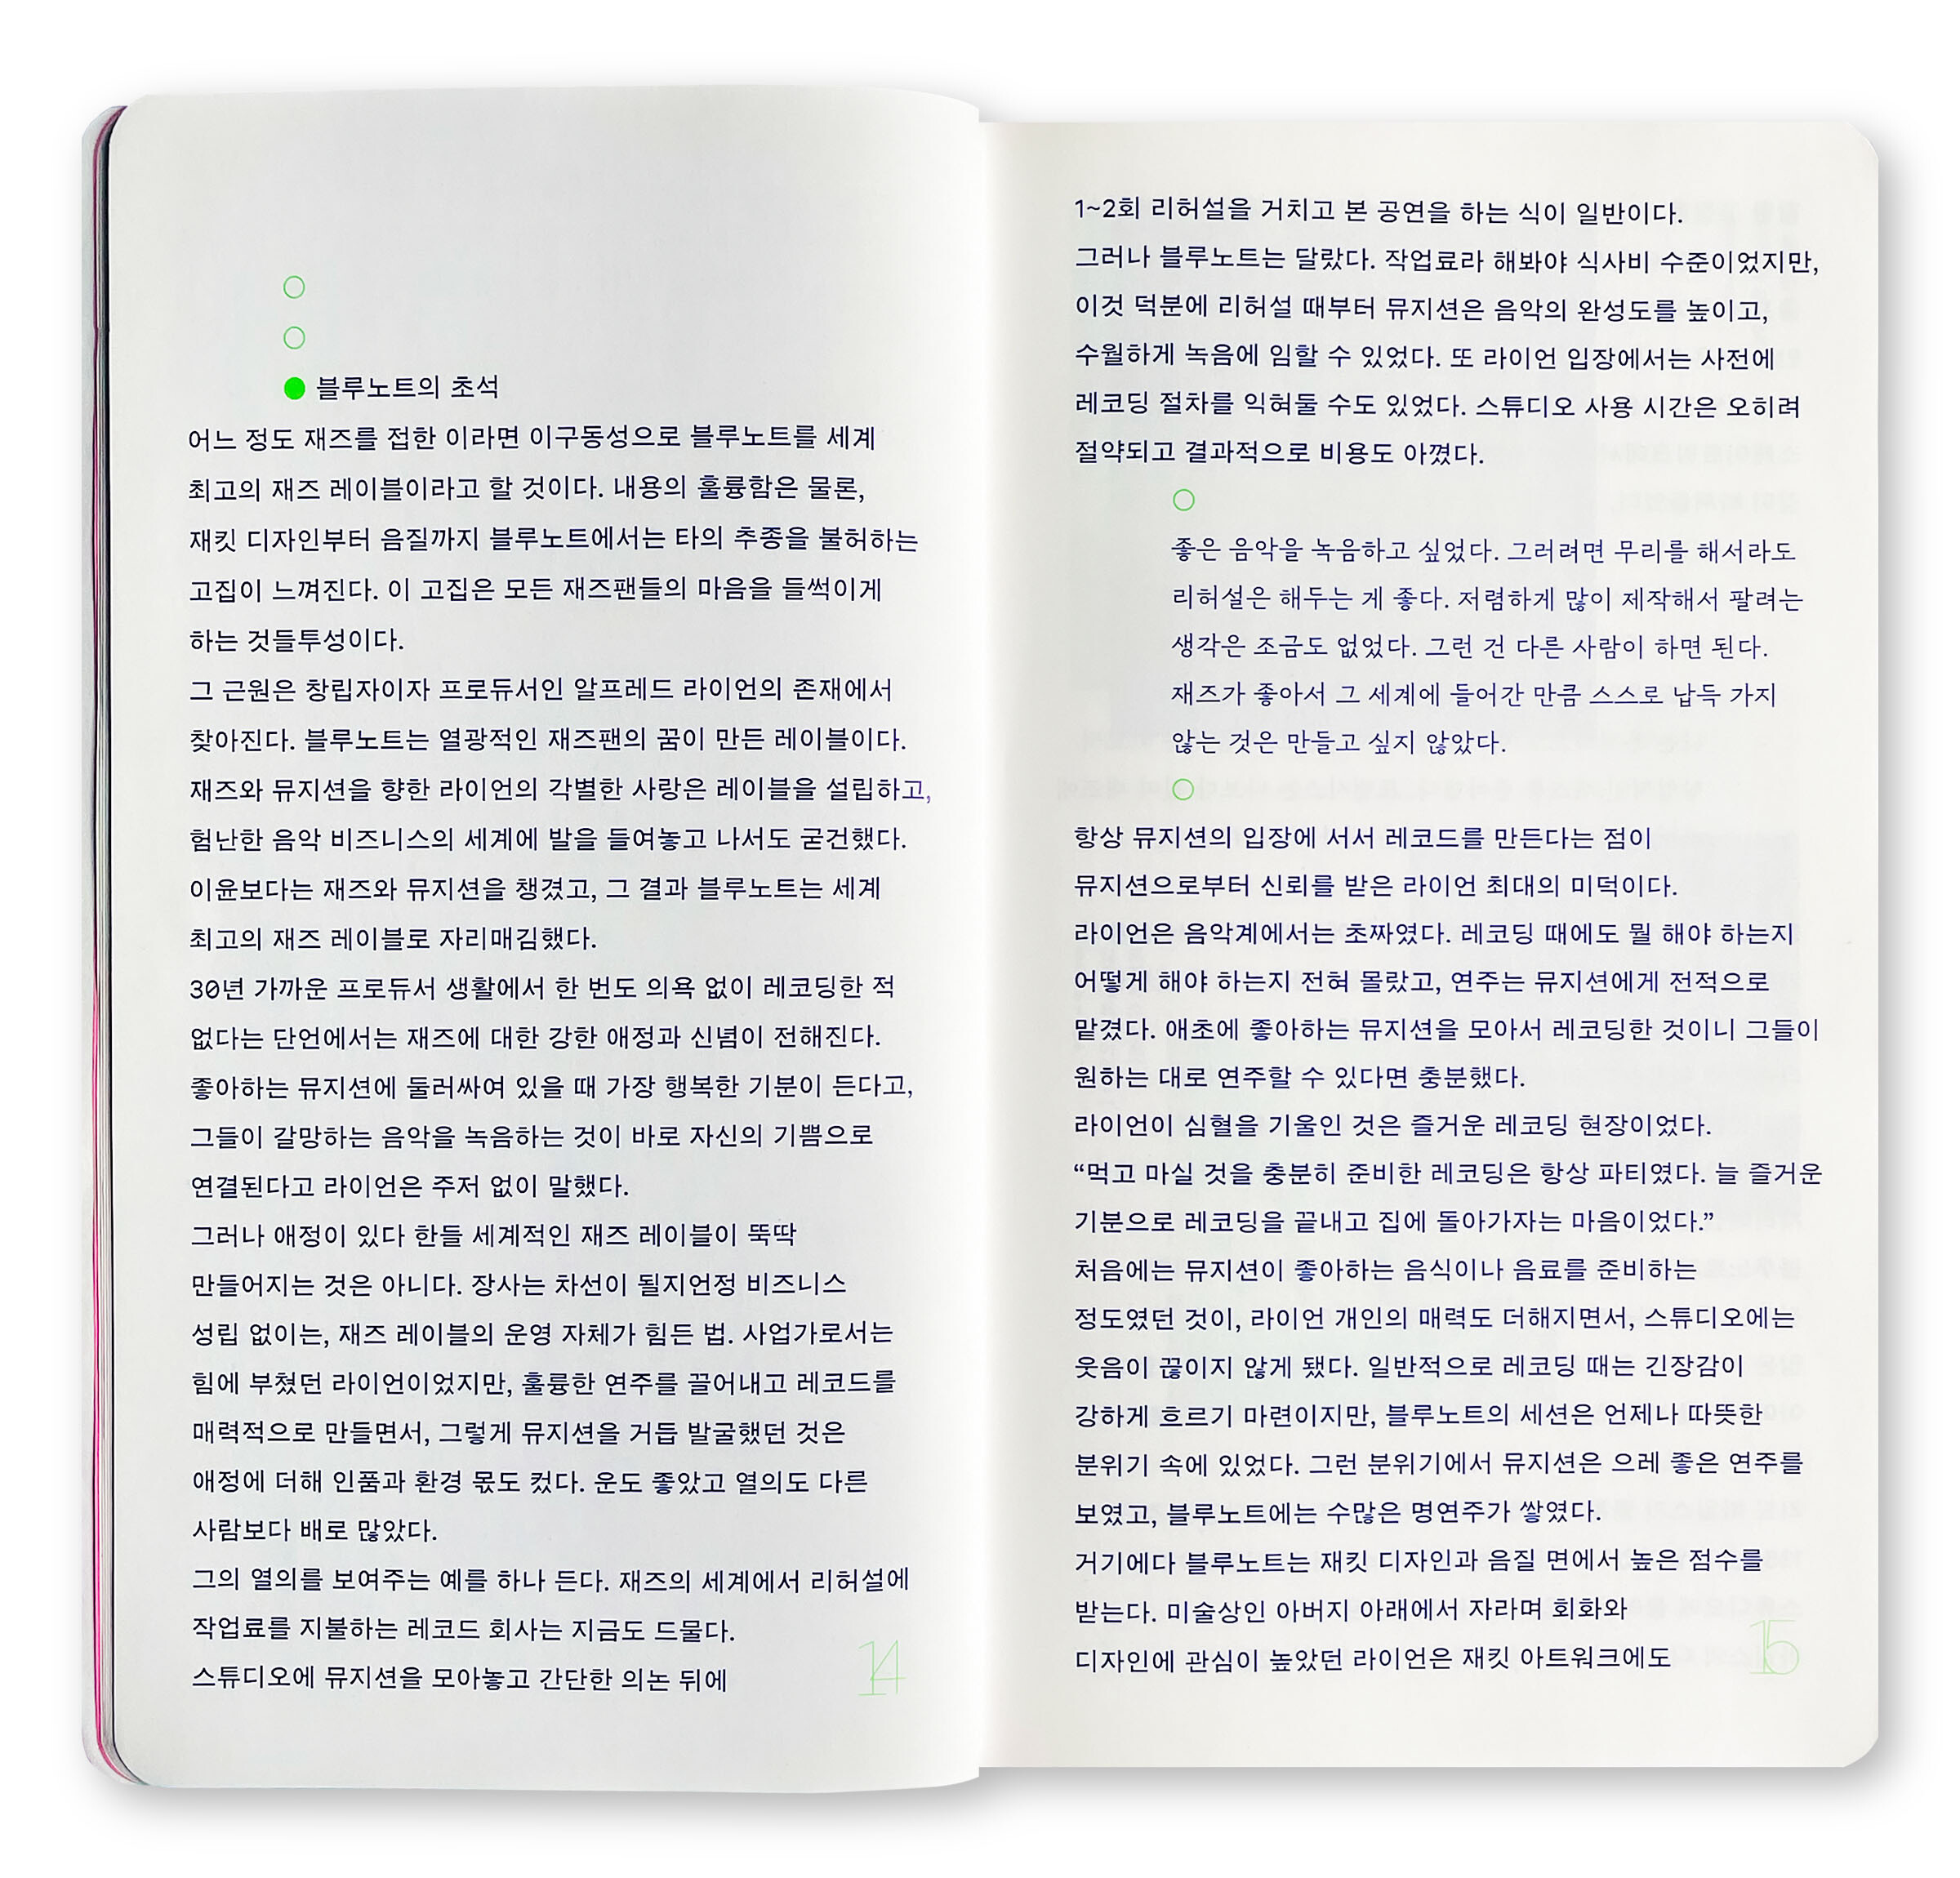 블루노트의 초석
어느 정도 재즈를 접한 이라면 이구동성으로 블루노트를 세계
최고의 재즈 레이블이라고 할 것이다. 내용의 훌륭함은 물론,
재킷 디자인부터 음질까지 블루노트에서는 타의 추종을 불허하는
고집이 느껴진다. 이 고집은 모든 재즈팬들의 마음을 들썩이게
하는 것들투성이다.
그 근원은 창립자이자 프로듀서인 알프레드 라이언의 존재에서
찾아진다. 블루노트는 열광적인 재즈팬의 꿈이 만든 레이블이다.
재즈와 뮤지션을 향한 라이언의 각별한 사랑은 레이블을 설립하고,
험난한 음악 비즈니스의 세계에 발을 들여놓고 나서도 굳건했다.
이윤보다는 재즈와 뮤지션을 챙겼고, 그 결과 블루노트는 세계
최고의 재즈 레이블로 자리매김했다.
30년 가까운 프로듀서 생활에서 한 번도 의욕 없이 레코딩한 적
없다는 단언에서는 재즈에 대한 강한 애정과 신념이 전해진다.
좋아하는 뮤지션에 둘러싸여 있을 때 가장 행복한 기분이 든다고,
그들이 갈망하는 음악을 녹음하는 것이 바로 자신의 기쁨으로
연결된다고 라이언은 주저 없이 말했다.
그러나 애정이 있다 한들 세계적인 재즈 레이블이 뚝딱
만들어지는 것은 아니다. 장사는 차선이 될지언정 비즈니스
성립 없이는, 재즈 레이블의 운영 자체가 힘든 법. 사업가로서는
힘에 부쳤던 라이언이었지만, 훌륭한 연주를 끌어내고 레코드를
매력적으로 만들면서, 그렇게 뮤지션을 거듭 발굴했던 것은
애정에 더해 인품과 환경 몫도 컸다. 운도 좋았고 열의도 다른
사람보다 배로 많았다.
그의 열의를 보여주는 예를 하나 든다. 재즈의 세계에서 리허설에
작업료를 지불하는 레코드 회사는 지금도 드물다.
스튜디오에 뮤지션을 모아놓고 간단한 의논 뒤에
14
1~2회 리허설을 거치고 본 공연을 하는 식이 일반이다.
그러나 블루노트는 달랐다. 작업료라 해봐야 식사비 수준이었지만,
이것 덕분에 리허설 때부터 뮤지션은 음악의 완성도를 높이고,
수월하게 녹음에 임할 수 있었다. 또 라이언 입장에서는 사전에
레코딩 절차를 익혀둘 수도 있었다. 스튜디오 사용 시간은 오히려
절약되고 결과적으로 비용도 아꼈다.
좋은 음악을 녹음하고 싶었다. 그러려면 무리를 해서라도
리허설은 해두는 게 좋다. 저렴하게 많이 제작해서 팔려는
생각은 조금도 없었다. 그런 건 다른 사람이 하면 된다.
재즈가 좋아서 그 세계에 들어간 만큼 스스로 납득 가지
않는 것은 만들고 싶지 않았다.
항상 뮤지션의 입장에 서서 레코드를 만든다는 점이
뮤지션으로부터 신뢰를 받은 라이언 최대의 미덕이다.
라이언은 음악계에서는 초짜였다. 레코딩 때에도 뭘 해야 하는지
어떻게 해야 하는지 전혀 몰랐고, 연주는 뮤지션에게 전적으로
맡겼다. 애초에 좋아하는 뮤지션을 모아서 레코딩한 것이니 그들이
원하는 대로 연주할 수 있다면 충분했다.
라이언이 심혈을 기울인 것은 즐거운 레코딩 현장이었다.
“먹고 마실 것을 충분히 준비한 레코딩은 항상 파티였다. 늘 즐거운
기분으로 레코딩을 끝내고 집에 돌아가자는 마음이었다.”
처음에는 뮤지션이 좋아하는 음식이나 음료를 준비하는
정도였던 것이, 라이언 개인의 매력도 더해지면서, 스튜디오에는
웃음이 끊이지 않게 됐다. 일반적으로 레코딩 때는 긴장감이
강하게 흐르기 마련이지만, 블루노트의 세션은 언제나 따뜻한
분위기 속에 있었다. 그런 분위기에서 뮤지션은 으레 좋은 연주를
보였고, 블루노트에는 수많은 명연주가 쌓였다.
거기에다 블루노트는 재킷 디자인과 음질 면에서 높은 점수를
받는다. 미술상인 아버지 아래에서 자라며 회화와
디자인에 관심이 높았던 라이언은 재킷 아트워크에도
15